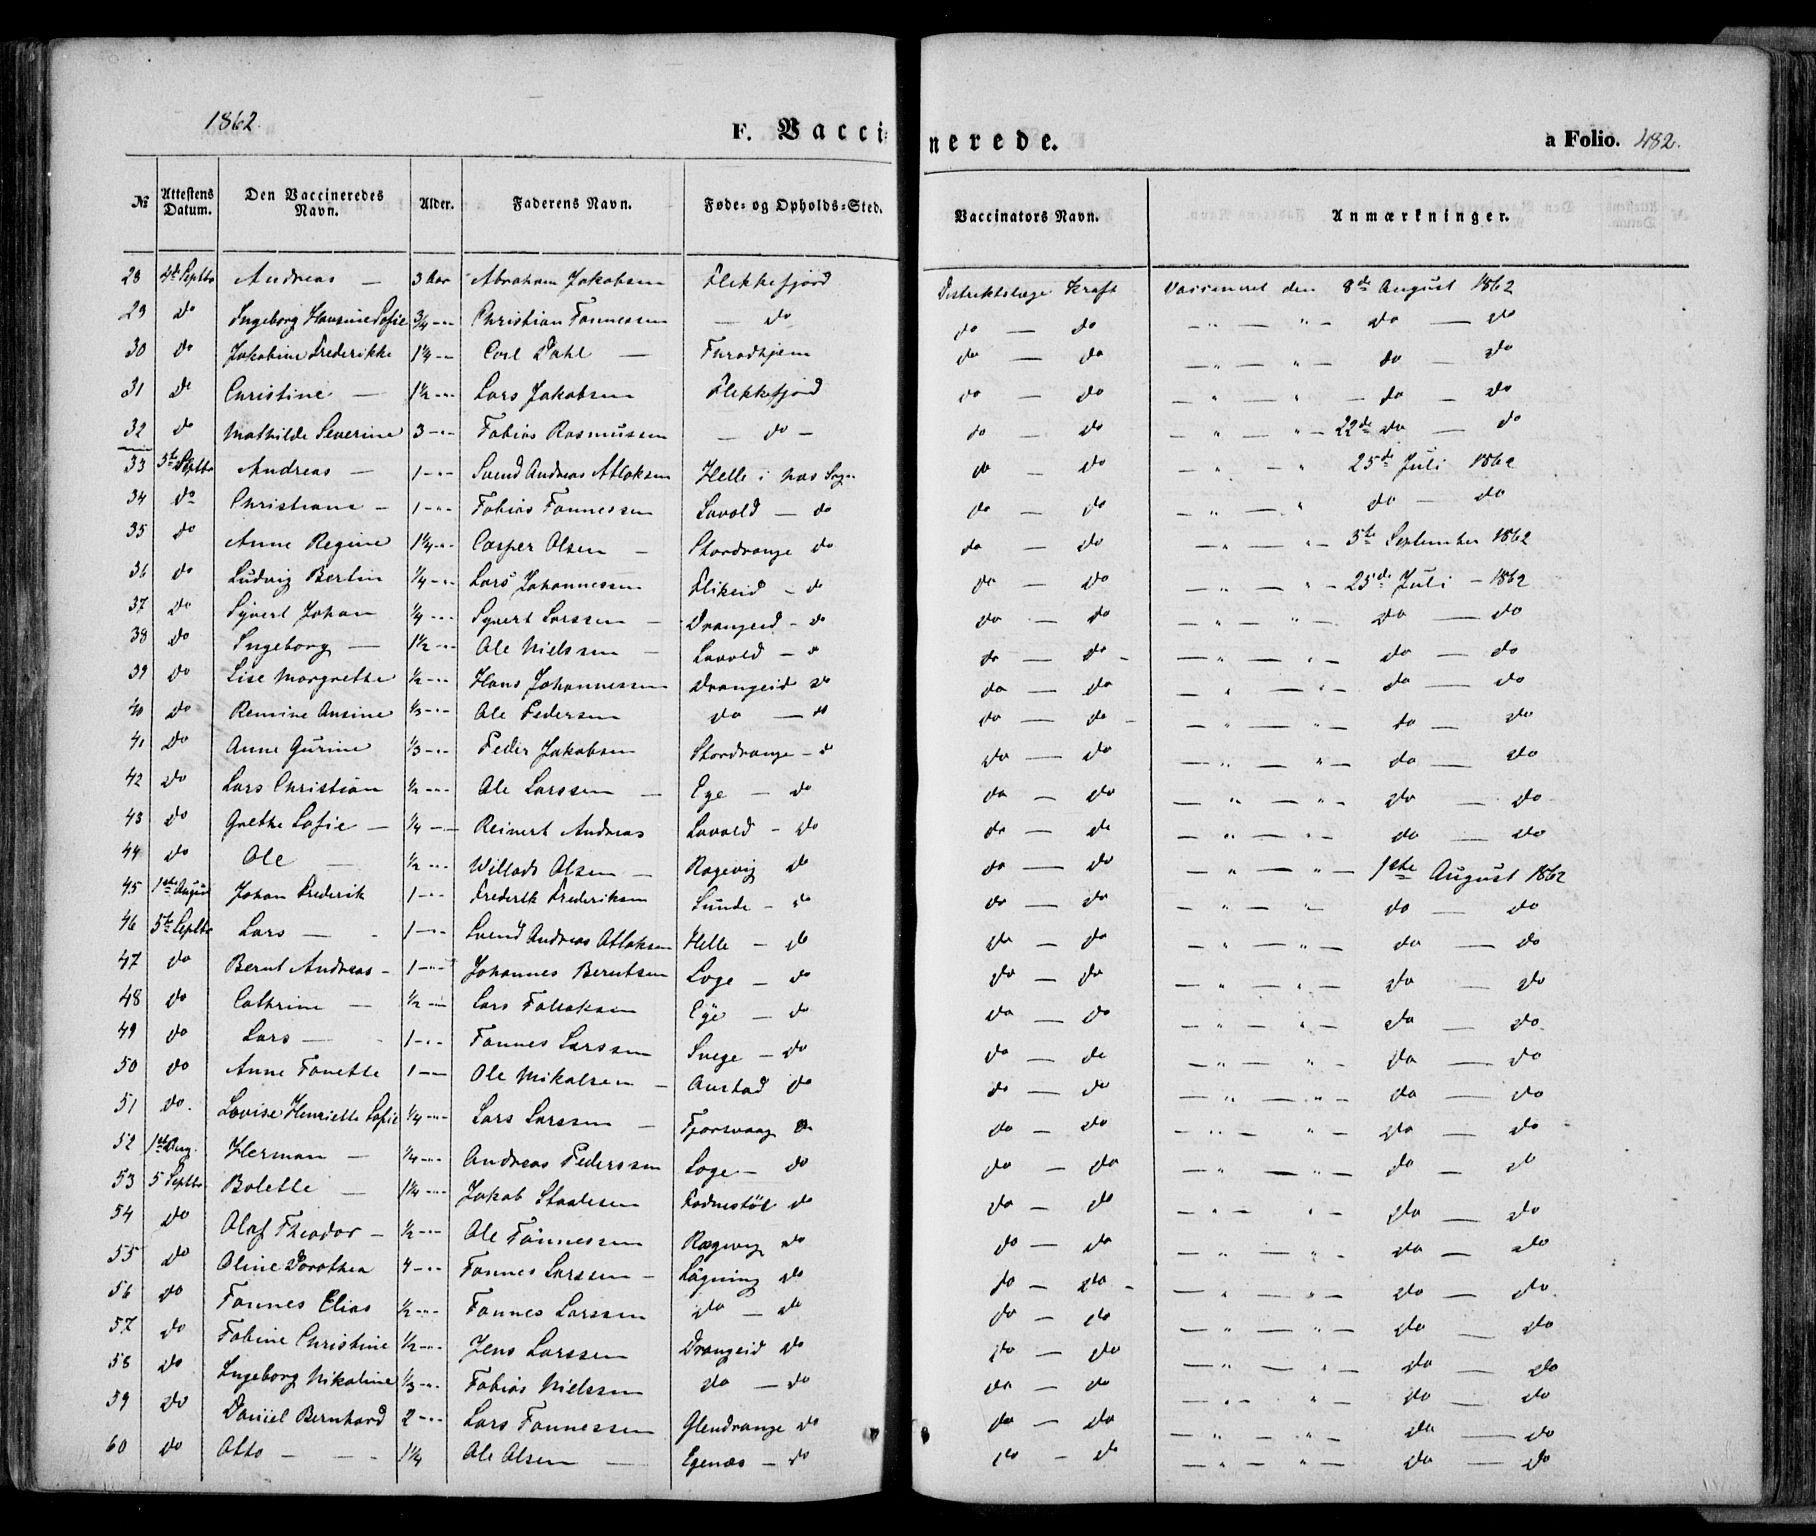 1862.
F. Vaccinerede.
a Folio. 482.
№ Attestens Datum. Den Vaccineredes Navn. Alder. Faderens Navn. Føde- og Opholds-Sted. Vaccinators Navn. Anmærkninger.
28 4de Septbr Andreas — 3 Aar Abraham Jakobsen Flekkefjord Distriktslæge Kraft Vaccineret den 8de August 1862
29 do Ingeborg Hansine Sofie 3/4 -"- Christian Tønnessen — do do — do — " — " — do — do
30 do Jakobine Frederikke 1 1/4 -"- Carl Dahl — do — do — " — " — do — do
31 do Christine — 1 1/2 -"- Lars Jakobsen Flekkefjord do — do — " — " — do — do
32 do Mathilde Severine 3 -"- Tobias Rasmussen — do — do — do — " — " — 22de do — do
33 5te Septbr Andreas — 1 -"- Svend Andreas Atlaksen Helle i Næs Sogn do — do — " — " 25de Juli 1862
34 do Christiane — 1 -"- Tobias Tønnessen Lavold — do do — do — " — " do — do
35 do Anne Regine 1 1/4 -"- Casper Olsen — Stordrange do do — do — " — " — 5te September 1862
36 do Ludvig Bertin 1/4 -"- Lars Johannessen Flikeid — do do — do — " — " — 25de Juli — 1862
37 do Syvert Johan 1/4 -"- Syvert Larssen — Drangeid — do do — do — " — " — do — do
38 do Ingeborg — 1 1/2 -"- Ole Nielssen — Lavold — do do — do — — " — " — do — do
39 do Lise Margrethe 1/2 -"- Hans Johannessen Drangeid do do — do — " — " — do — do
40 do Remine Ansine 1/3 -"- Ole Pedersen do — do do — do — — " — " — do — do
41 do Anne Gurine 1/3 -"- Peder Jakobsen Stordrange — do do — do — " — " — do — do
42 do Lars Christian 1/2 -"- Ole Larssen — Ege — do do — do — " — " — do — do
43 do Grethe Sofie — 1/4 -"- Reinert Andreas Lavold — do do — do — " — " — do — do
44 do Ole — 1/2 -"- Willads Olsen — Ragevig do do — do — " — " — 1ste August 1862
45 1ste August Johan Frederik 1 -"- Frederik Frederiksen Sunde — do do — do — " — " — do — do
46 5te Septbr Lars — 1 -"- Svend Andreas Atlaksen Helle — do do — do — " — " — do — do
47 do Bernt Andreas — 1 -"- Johannes Berntsen Loge — do do — do — " — " — do — do
48 do Cathrine — 1/2 -"- Lars Ege — do do — do — " — " — do — do
49 do Lars — 1 -"- Tønnes Larssen Svege — do do — do — " — " — do — do
50 do Anne Tonette 1 -"- Ole Mikalsen — Austad do do — do — " — " — do — do
51 do. Lovise Henriette Sofie 1/4 -"- Lars Larssen — Tjorsvaag do do — do — " — " — do — do
52 1ste Aug. Herman — 1/4 -"- Andreas Pederssen Loge — do do — do — " — " — do — do
53 5 Septbr Bolette — 1 1/4 -"- Jakob Staalesen Fodnestöl do do — do — " — " — do — do
54 do Olaf Theodor — 1/2 -"- Ole Tønnessen Rægevig do do — do — " — " — do — do
55 do Oline Dorothea 4 -"- Tønnes Larssen — Løgning do do — do — — " — " — do — do.
56 do Tønnes Elias 1/2 -"- Tønnes Larssen do — do do — do — " — " — do — do
57 do Tobine Christine 1/2 -"- Jens Larssen Drangeid do do — do — " — " — do — do
58 do Ingeborg Nikoline 1/3 -"- Tobias Nielssen do — do do — do — " — " — do — do
59 do Daniel Bernhard 2 -"- Lars Tønnessen Glendrange do do — do — " — " — do — do
60 do Otto — 1 1/4 Ole Olsen — Egenæs — do do — do — " — " — do — do